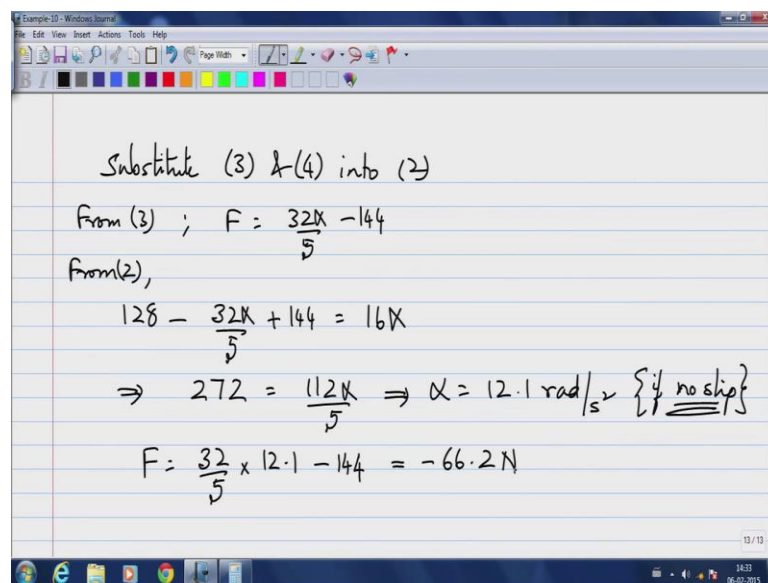 Example-10 - Windows Journal
File Edit View Insert Actions Tools Help
Page Width
B I
Substitute (3) &(4) into (2)
From (3) ; F = 32α/5 - 144
From (2),
128 - 32α/5 + 144 = 16α
⇒ 272 = 112α/5 ⇒ α = 12.1 rad/s² {if no slip}
F = 32/5 × 12.1 - 144 = -66.2 N
13 / 13
14:33
06-02-2015